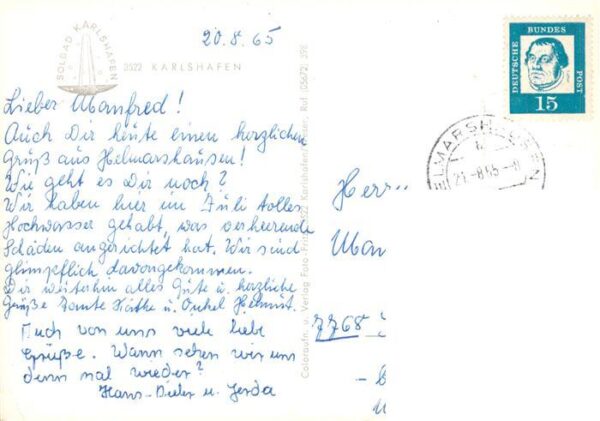 20.8.65
SOLBAD KARLSHAFEN
3522 KARLSHAFEN
Lieber Manfred!
Auch Dir heute einen herzlichen
Gruß aus Helmarshausen!
Wie geht es Dir noch?
Wir haben hier im Juli tolles
Hochwasser gehabt, was verheerende
Schäden angerichtet hat. Wir sind
glimpflich davongekommen.
Dir weiterhin alles Gute u. herzliche
Grüße Tante Käthe u. Onkel Helmut.
Auch von uns viele liebe
Grüße. Wann sehen wir uns
denn mal wieder?
Hans-Dieter u. Gerda
Coloraufn. u. Verlag Foto-Fritz, 3522 Karlshafen/Weser, Ruf (05672) 398
DEUTSCHE BUNDES POST
15
ELMARSH SEN
-8.65-8
Herr
Man
7768